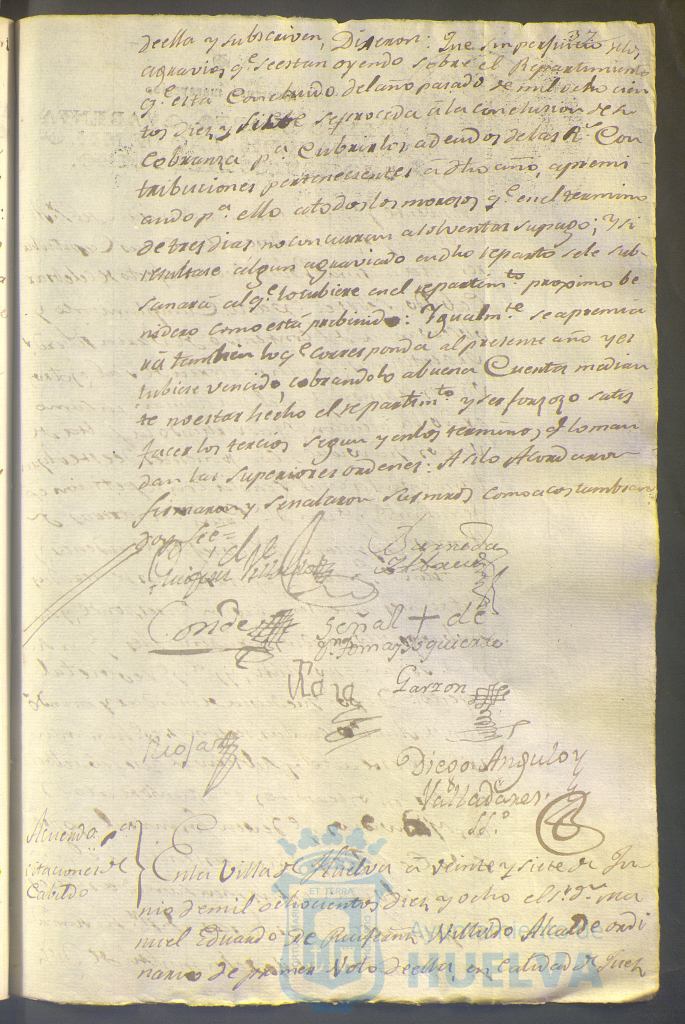 37
de ella y subscriven, Dixeron: Que sin perjuicio de los
agravios q.e se estan oyendo sobre el Repartimiento
q.e esta Concluido del año pasado de mil ocho cien
tos diez y siete se proceda á la conclusion de su
Cobranza p.a Cubrir los adeudos de las R.s Con
tribuciones pertenecientes á dho año, apremi
ando p.a ello a todos los morosos q.e en el termino
de tres dias no concurran a solventar su pago; Y si
resultase algun agraviado en dho reparto se le sub-
sanará al q.e lo tubiere en el repartim.to proximo be
nidero como está prebinido: Ygualm.te se apremia
rá tambien lo q.e corresponda al presente año y es
tubiese vencido, cobrandolo a buena Cuenta median
te no estar hecho el repartim.to y ser forzozo satis
facer los tercios segun y en los terminos q.e lo man
dan las Superiores ordenes: Asi lo Acordaron
firmaron y señalaron sus mrds como acostumbran
doy feé=
Barneda
Conde
Señal + de
Tomas Yzquierdo
Garzon
Rioja
Diego Angulo y
Valladares
SS.o
Acuerda
citaciones de
Cabildo
En la Villa de Huelva á veinte y siete de Ju
nio de mil ochocientos diez y ocho el S.r D.n Ma
nuel Eduardo de Villalvo Alcalde ordi
nario de primer Voto de ella, en Calidad de Juez
ET TERRA
Ayuntamiento de
HUELVA